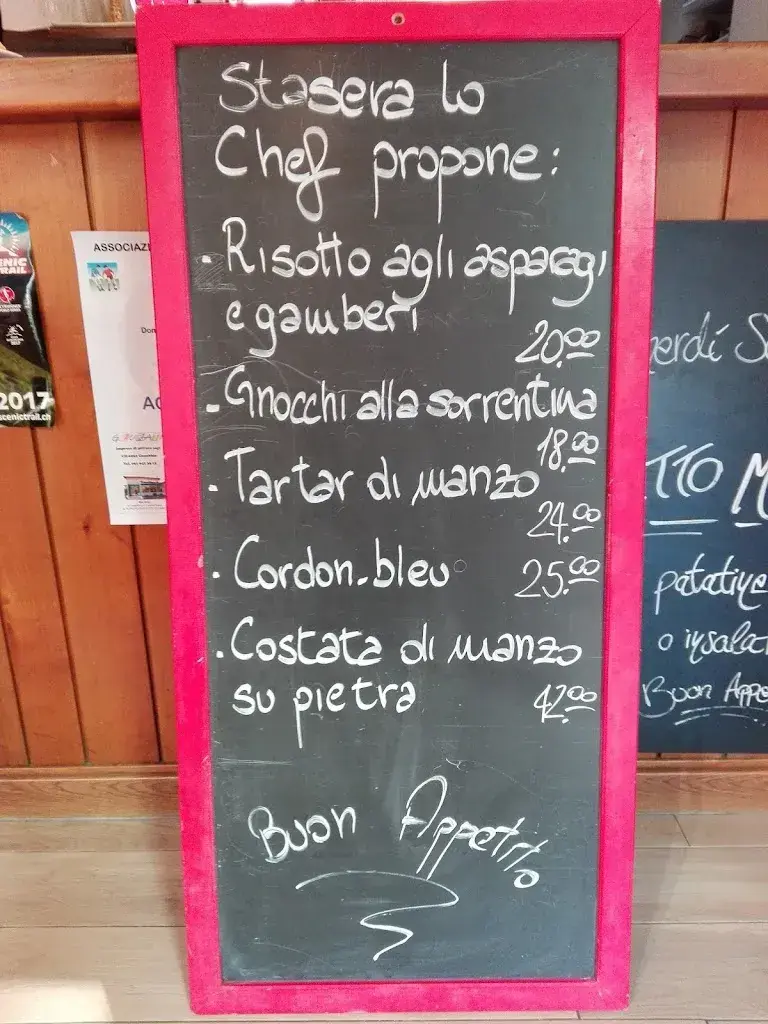 Stasera lo
Chef propone:
- Risotto agli asparagi
e gamberi
20.00
- Gnocchi alla sorrentina
18.00
- Tartar di manzo
24.00
- Cordon-bleu 25.00
- Costata di manzo
su pietra 42.00
Buon Appetito
ASSOCIAZI
2017
scenictrail.ch
TRAIL
patatine
Buon Appe